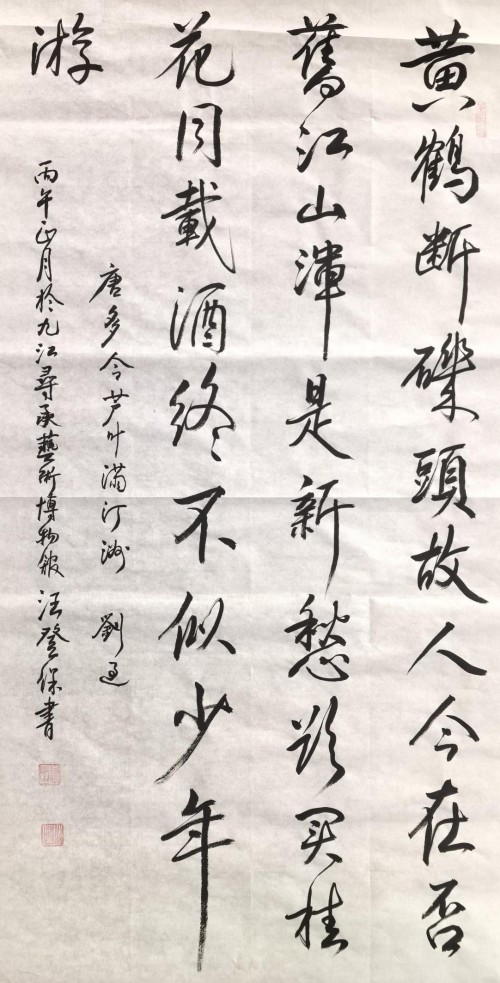 黄鶴断磯頭故人今在否
舊江山渾是新愁欲买桂
花同載酒終不似少年
游
唐多令芦叶满汀洲 劉过
丙午正月於九江尋承藝術博物館汪登保書